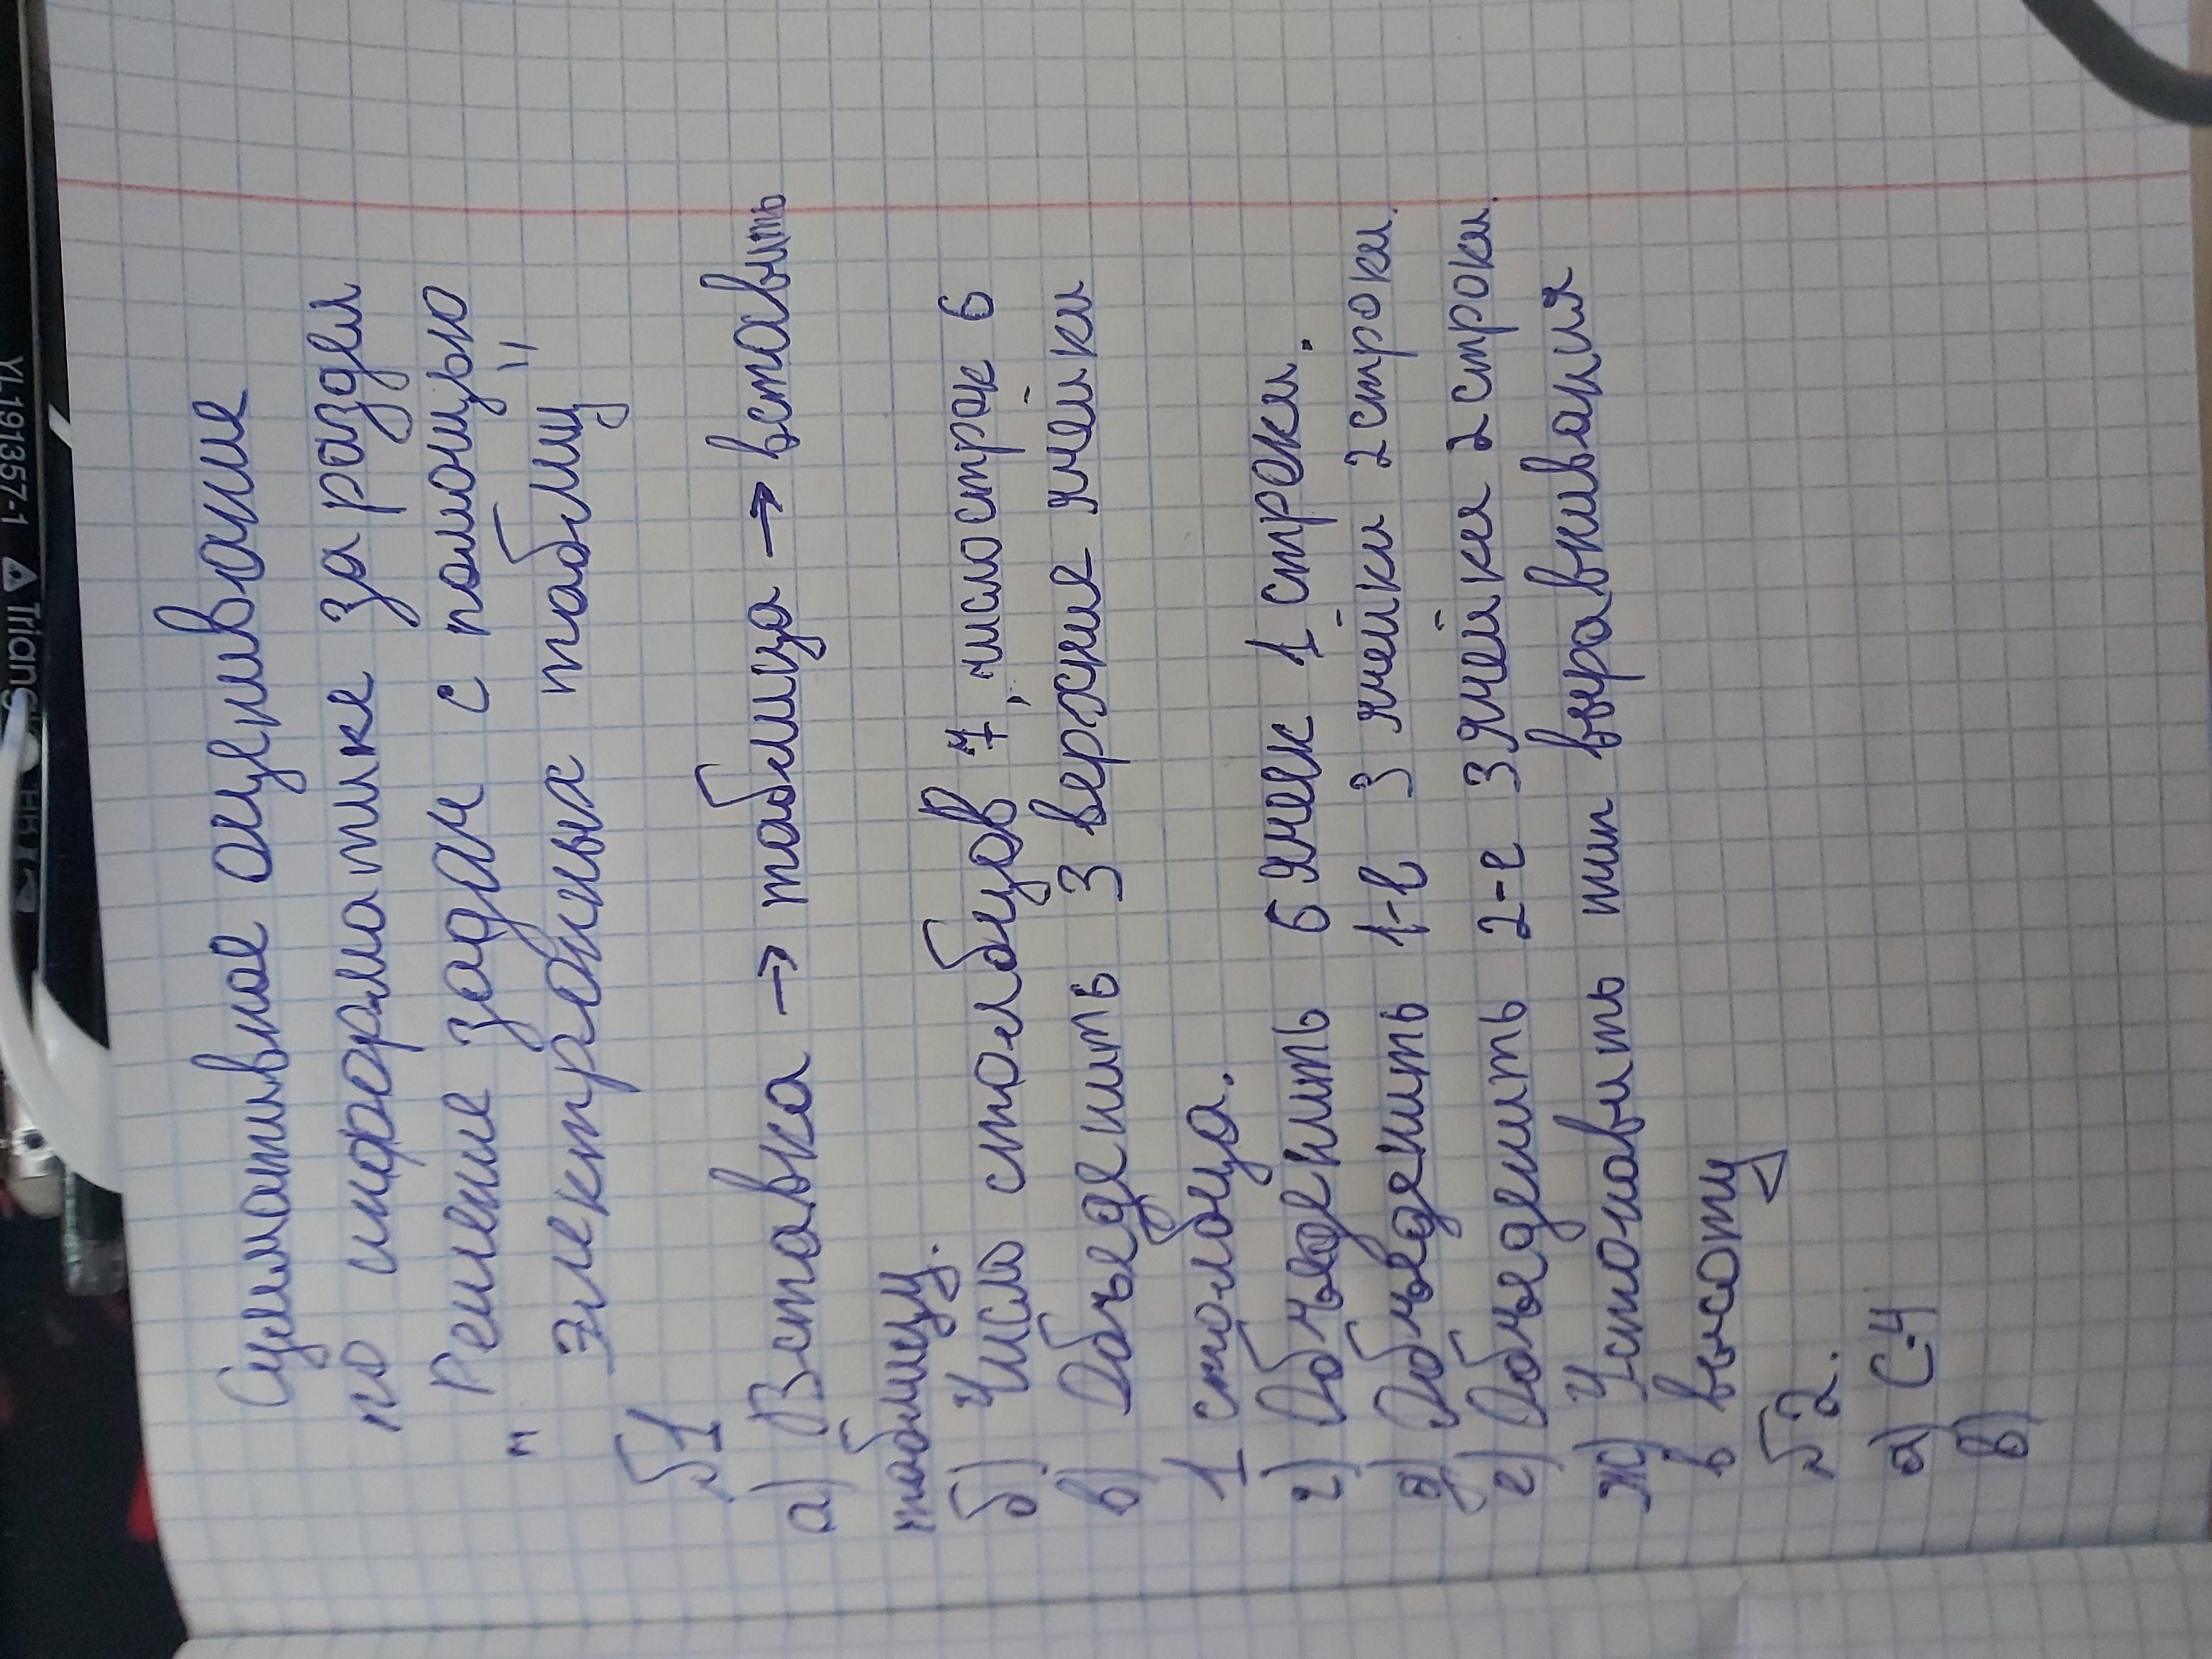 Суммативное оценивание
по информатике за раздел
"Решение задач с помощью
электронных таблиц"
№1
а) Вставка → таблица → вставить
таблицу.
б) Число столбцов 7, число строк 6
в) Объеденить 3 верхние ячейки
1 столбца.
г) Объеденить 6 ячек 1 строки.
д) Объеденить 1-е 3 ячейки 2 строки.
е) Объеденить 2-е 3 ячейки 2 строки.
ж) Установить тип выравнивания
в высоту
№2.
а) С-4
в)
YL191357-1 Triang
HB